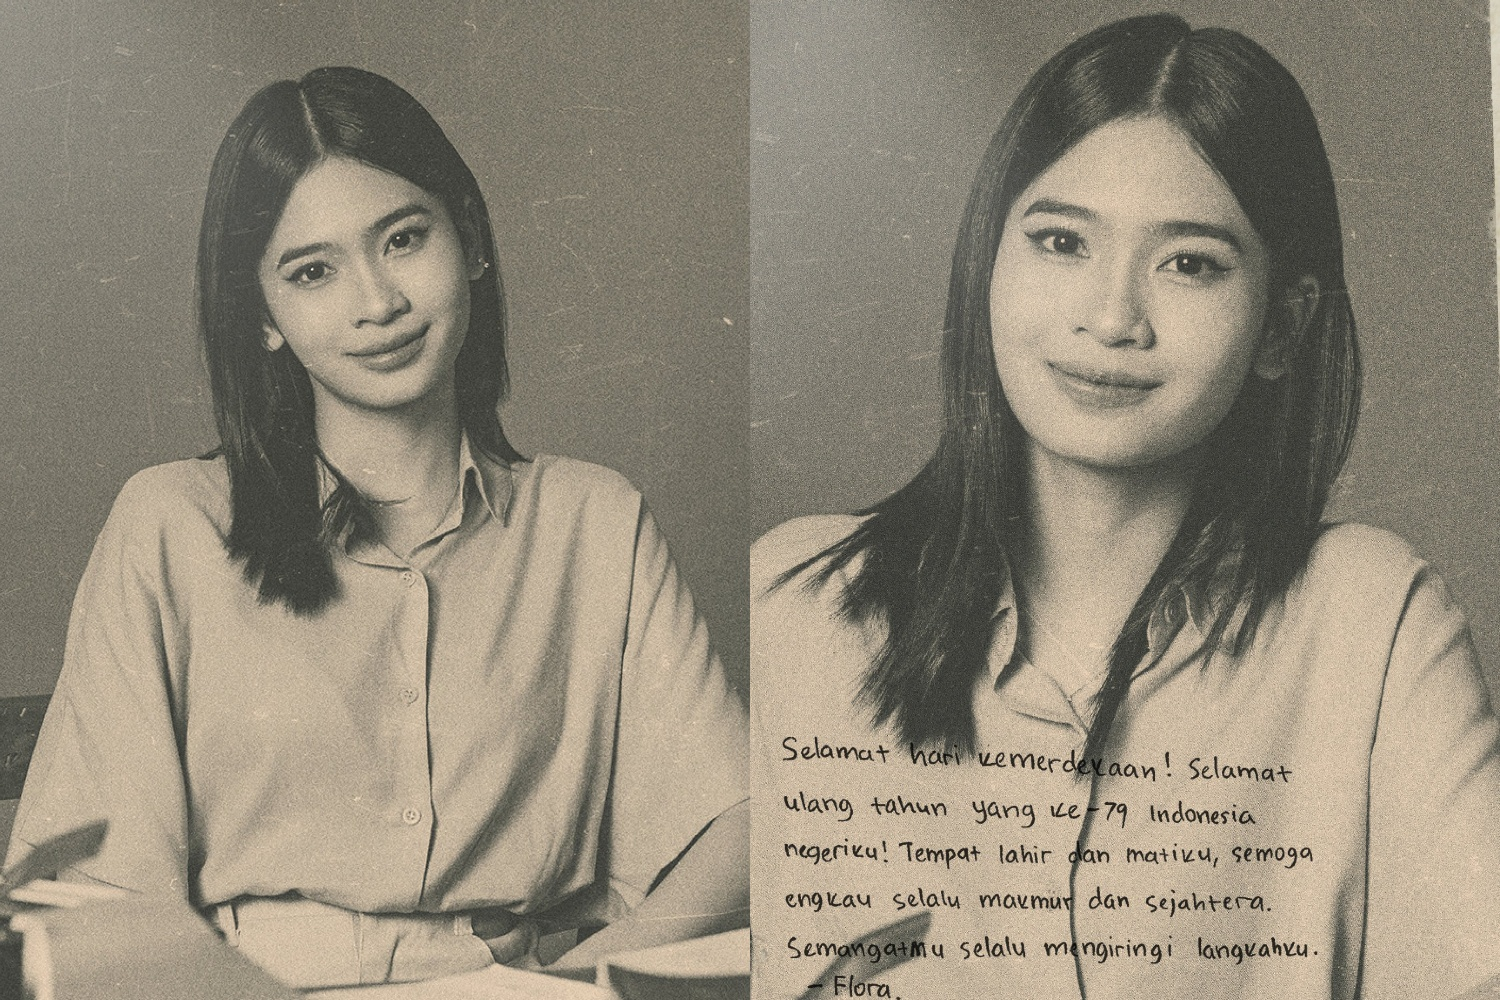 Selamat hari kemerdekaan! Selamat
ulang tahun yang ke-79 Indonesia
negeriku! Tempat lahir dan matiku, semoga
engkau selalu makmur dan sejahtera.
Semangatmu selalu mengiringi langkahku.
- Flora.